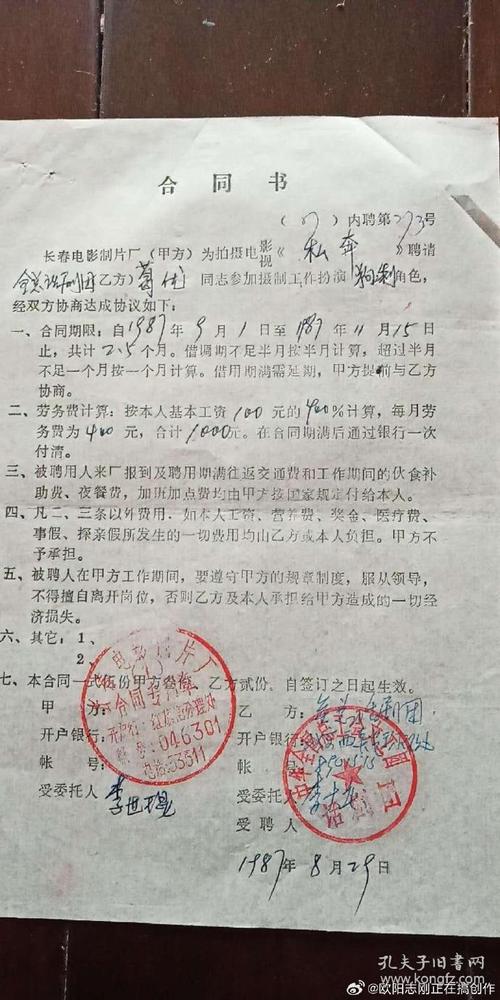 合同书
(87)内聘第273号
长春电影制片厂(甲方)为拍摄电影视《私奔》聘请
全总话剧团乙方)葛优同志参加摄制工作扮演 角色,
经双方协商达成协议如下:
一、合同期限:自1987年9月1日至1987年11月15日
止,共计2.5个月。借调期不足半月按半月计算,超过半月
不足一个月按一个月计算。借用期满需延期,甲方提前与乙方
协商。
二、劳务费计算:按本人基本工资100元的400%计算,每月劳
务费为400元,合计1000元。在合同期满后通过银行一次
付清。
三、被聘用人来厂报到及聘用期满往返交通费和工作期间的伙食补
助费、夜餐费,加班加点费均由甲方按国家规定付给本人。
四、凡二、三条以外费用,如本人工资、营养费、奖金、医疗费、
事假、探亲假所发生的一切费用均由乙方或本人负担。甲方不
予承担。
五、被聘人在甲方工作期间,要遵守甲方的规章制度,服从领导,
不得擅自离开岗位,否则乙方及本人承担给甲方造成的一切经
济损失。
六、其它:1、
2、
七、本合同一式伍份甲方叁份,乙方贰份,自签订之日起生效。
甲方:
开户银行:
帐号:
受委托人
长春电影制片厂
合同专用章
开户行:红旗街办理处
帐号:046301
电话:53311
乙方:全总话剧团
开户银行:
帐号:
受委托人
受聘人
1987年8月29日
孔夫子旧书网
@欧阳志刚正在搞创作